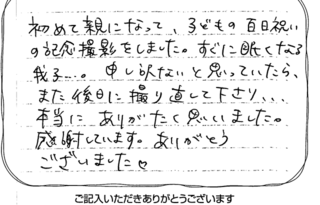 初めて親になって、子どもの百日祝い
の記念撮影をしました。すぐに眠くなる
我子…。申し訳ないと思っていたら、
また後日に撮り直して下さり、、、
本当にありがたく思いました。
感謝しています。ありがとう
ございました♡
ご記入いただきありがとうございます